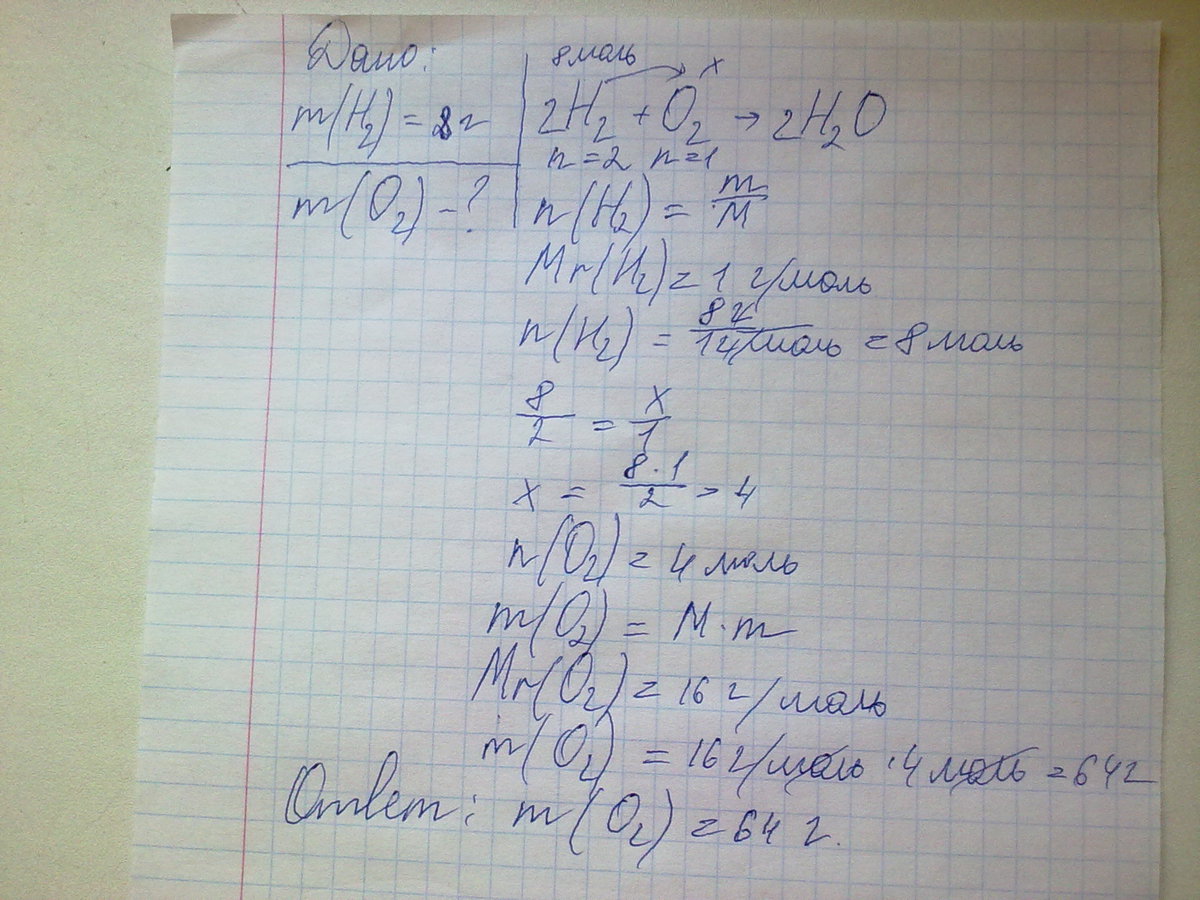 Дано:
m(H₂) = 8 г
m(O₂) - ?
8 моль x
2H₂ + O₂ → 2H₂O
n = 2 n = 1
n(H₂) = m/M
Mr(H₂) = 1 г/моль
n(H₂) = 8 г/1 г/моль = 8 моль
8/2 = x/1
x = 8·1/2 = 4
n(O₂) = 4 моль
m(O₂) = M·m
Mr(O₂) = 16 г/моль
m(O₂) = 16 г/моль · 4 моль = 64 г
Ответ: m(O₂) = 64 г.